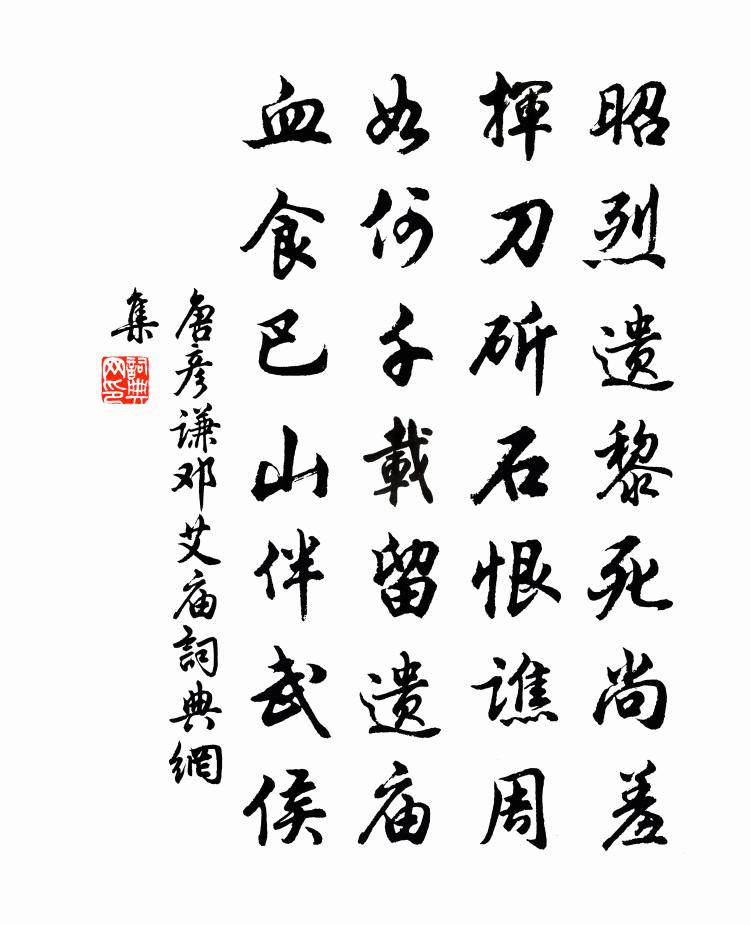 昭烈遗黎死尚羞
揮刀斫石恨譙周
如何千載留遗庙
血食巴山伴武侯
唐彦谦邓艾庙詞典網
集
詞典
网印